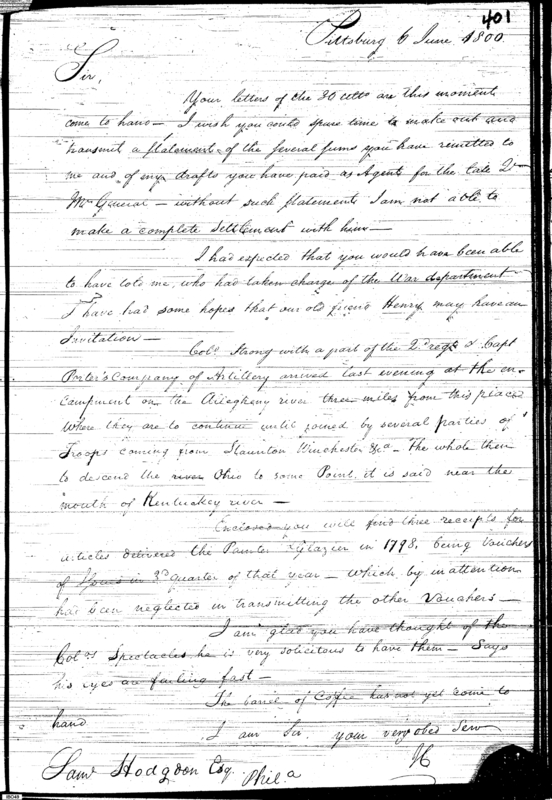 401
Pittsburg 6 June 1800
Sir,
Your letters of the 30 ulto are this moment
come to hand — I wish you could spare time to make out and
transmit a statement of the several sums you have remitted to
me and of my drafts you have paid as Agent for the late Qr
Mr General — without such statements I am not able to
make a complete settlement with him —
I had expected that you would have been able
to have told me, who had taken charge of the War department
I have had some hopes that our old friend Henry may have an
Invitation —
Colo. Strong with a part of the 2d regt & Capt
Porter's Company of Artillery arrived last evening at the en-
campment on the Allegheny river three miles from this place
where they are to continue until joined by several parties of
Troops coming from Staunton Winchester &ca — The whole then
to descend the river Ohio to some Point, it is said near the
mouth of Kentuckey river —
Enclosed you will find three receipts for
articles delivered the Painter & Glazier in 1798, being Vouchers
of in 3d quarter of that year — which by inattention
had been neglected in transmitting the other Vouchers —
I am glad you have thought of the
Colos Spectacles, he is very solicitous to have them — Says
his eyes are failing fast —
The barrel of Coffee has not yet come to
hand
I am Sir your very obed Serv
Saml Hodgdon Esq
Phila